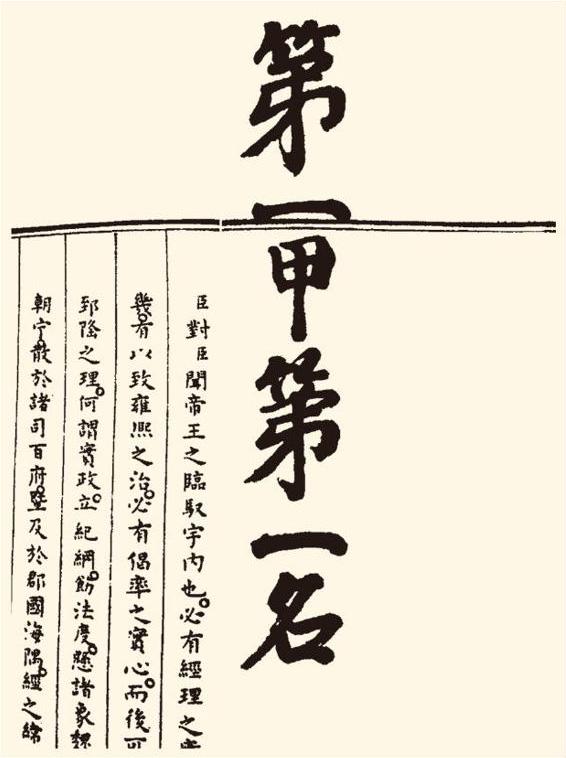 第一甲第一名
臣對臣聞帝王之臨馭宇內也。必有經理之
幾。有以致雍熙之治。必有倡率之實心。而後可
郅隆之理。何謂實政。立紀綱。飭法度。懸諸象魏
朝宁。散於諸司百府。暨及於郡國海隅。經之緯